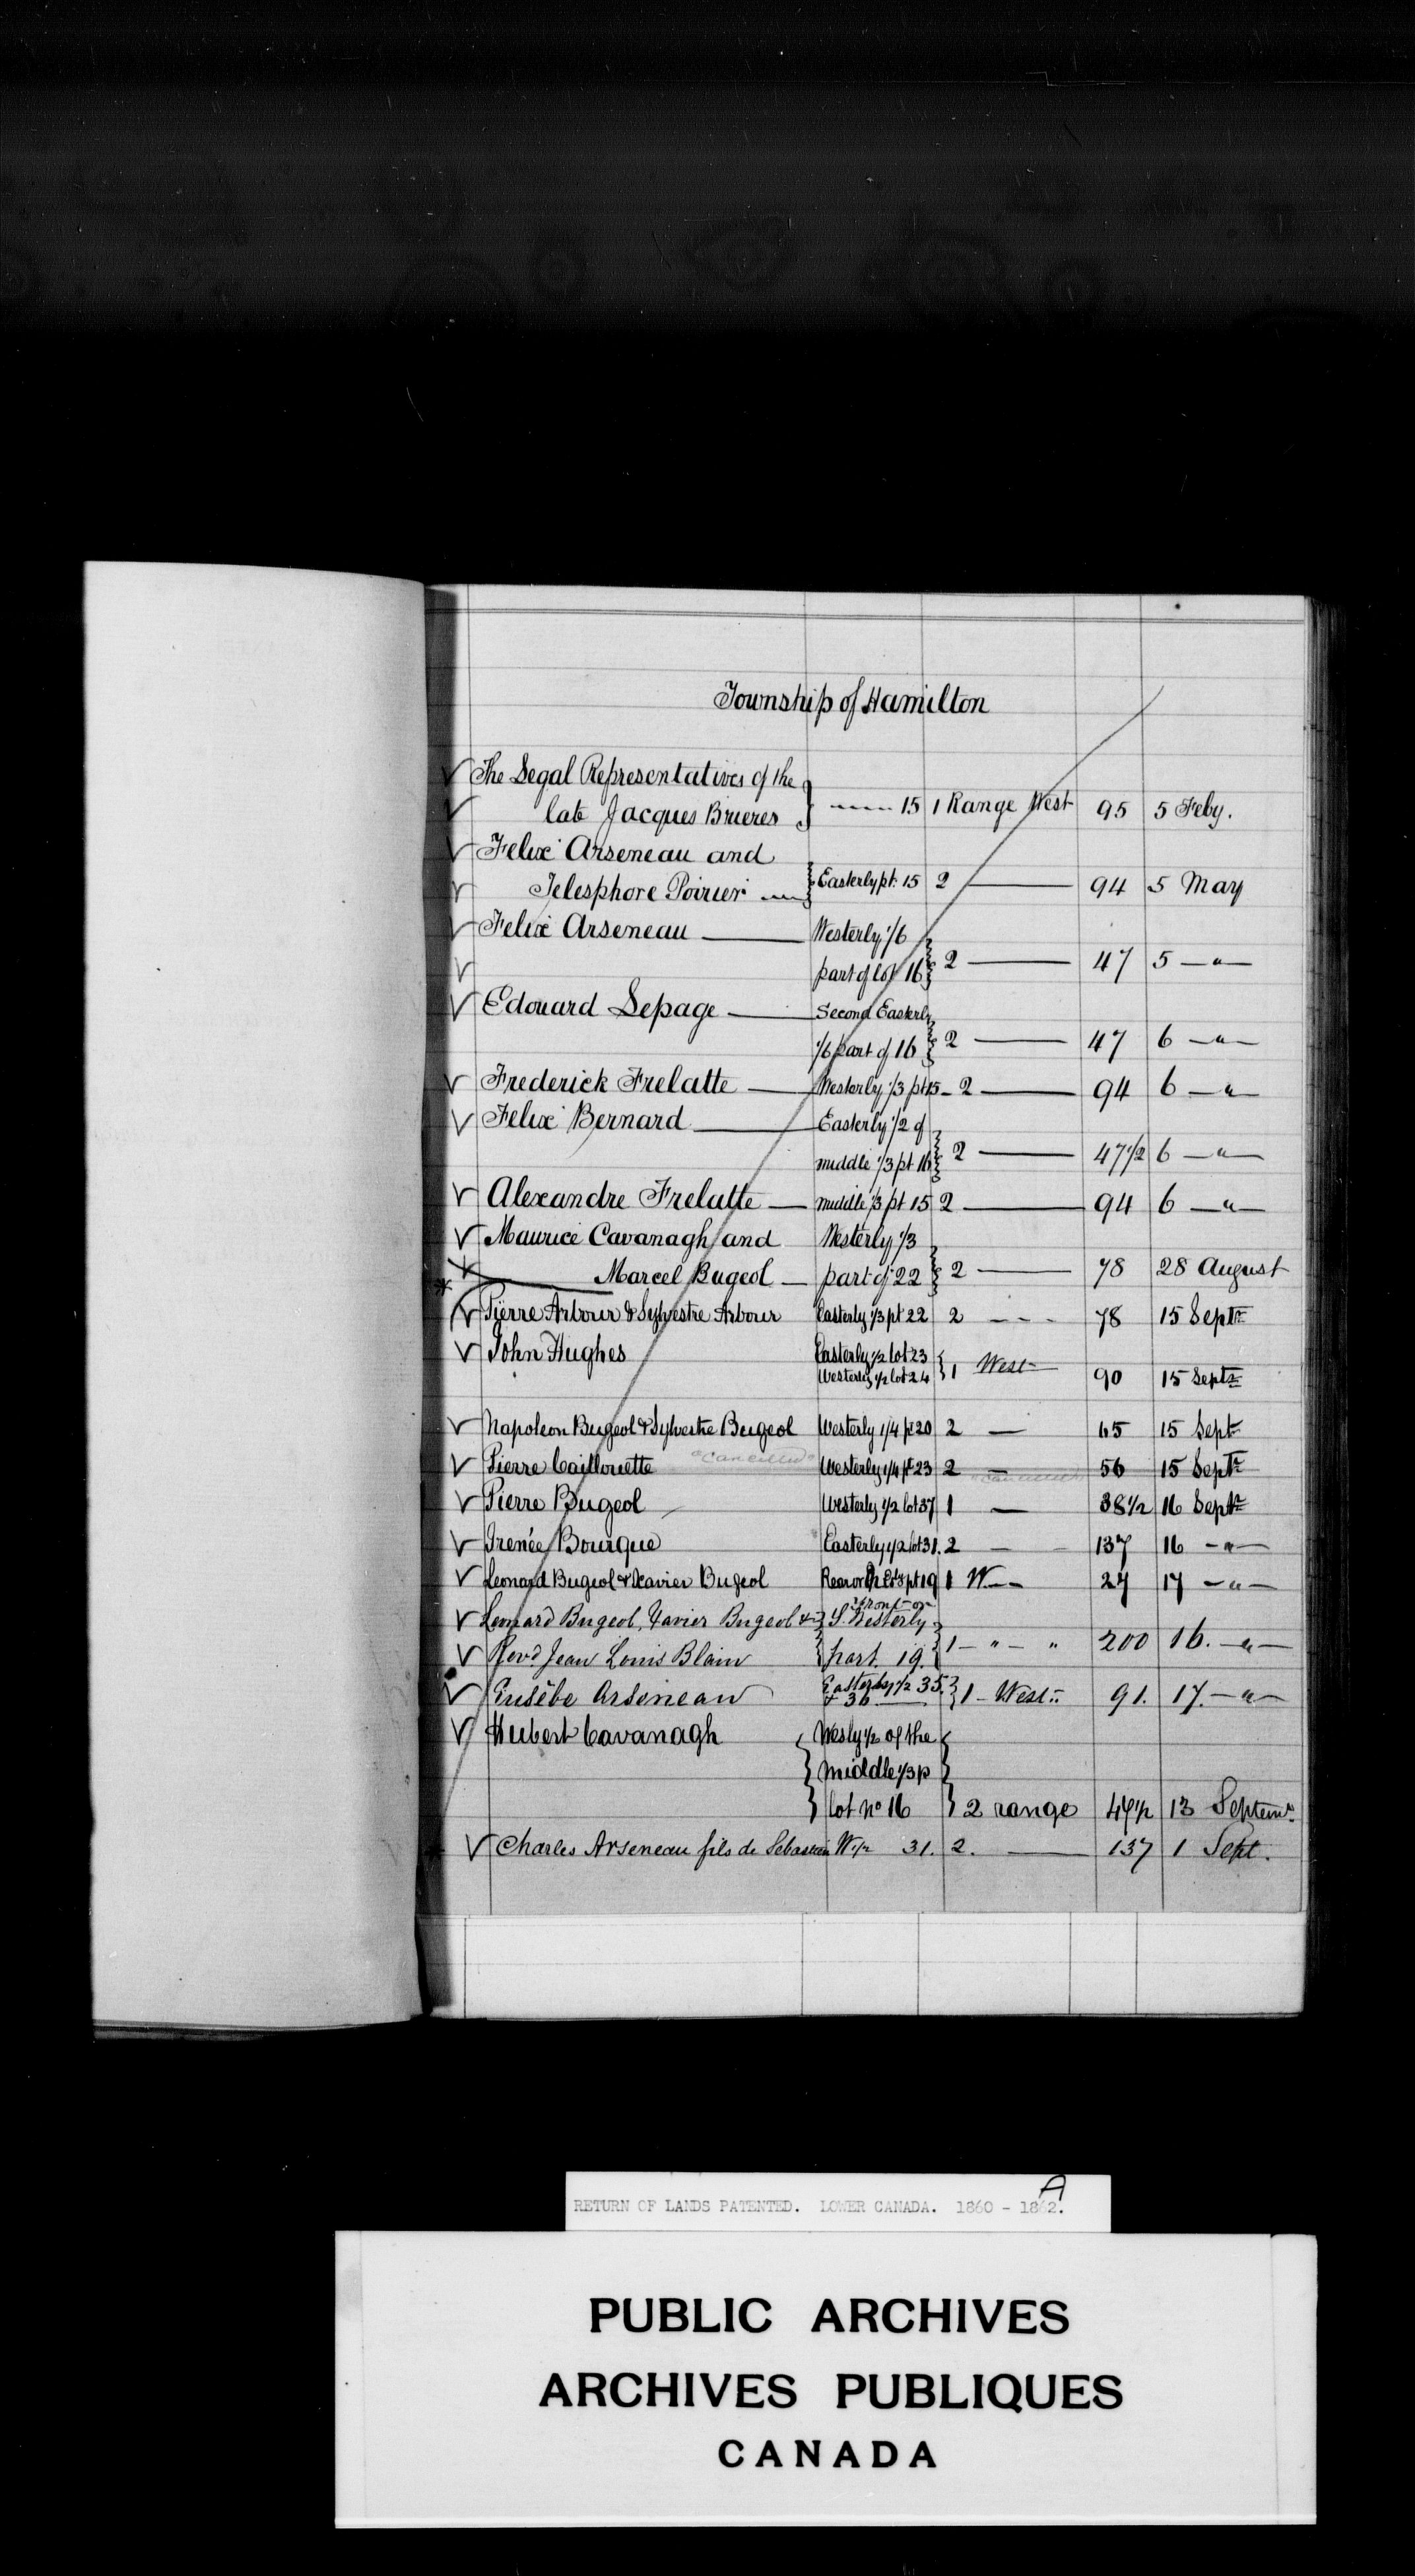 Township of Hamilton
The Legal Representatives of the
late Jacques Brieres 15 1 Range West 95 5 Feby.
Felix Arseneau and
Telesphore Poirier Easterly pt. 15 2 — 94 5 May
Felix Arseneau — Westerly 1/6
part of lot 16 2 — 47 5 — " —
Edouard Lepage — Second Easterly
1/6 part of 16 2 — 47 6 — " —
Frederick Frelatte — Westerly 1/3 pt 15 - 2 — 94 6 — " —
Felix Bernard — Easterly 1/2 of
middle 1/3 pt 16 2 — 47 1/2 6 — " —
Alexandre Frelatte — middle 1/3 pt 15 2 — 94 6 — " —
Maurice Cavanagh and Westerly 1/3
Marcel Bugeol — part of 22 2 — 78 28 August
Pierre Arbour & Sylvestre Arbour Easterly 1/3 pt 22 2 - - - 78 15 Septr
John Hughes Easterly 1/2 lot 23
Westerly 1/2 lot 24 1 West — 90 15 Septr
Napoleon Bugeol & Sylvestre Bugeol Westerly 1/4 pt 20 2 — 65 15 Sept
Pierre Caillouette "Cancelled" Westerly 1/4 pt 23 2 — "cancelled" 56 15 Septr
Pierre Bugeol Westerly 1/2 lot 37 1 — 38 1/2 16 Septr
Irenée Bourque Easterly 1/2 lot 31. 2 — 137 16 — " —
Leonard Bugeol & Xavier Bugeol Rear or pt 19 1 W. — 27 17 — " —
Leonard Bugeol, Xavier Bugeol & front or S. Westerly
Revd Jean Louis Blain part. 19. 1 — " — " 200 16. — " —
Eusèbe Arseneau Easterly 1/2 35.
& 36 — 1 - West 91. 17. — " —
Hubert Cavanagh Wesly 1/2 of the
middle 1/3 p
lot no 16 2 range 47 1/2 13 Septemr
Charles Arseneau fils de Sebastien W 1/2 31. 2. — 137 1 Sept.
A
RETURN OF LANDS PATENTED. LOWER CANADA. 1860 - 1862.
PUBLIC ARCHIVES
ARCHIVES PUBLIQUES
CANADA